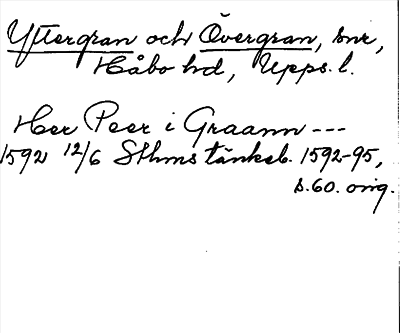 Yttergran och Övergran, snr,
Håbo hd, Upps. l.
Her Peer i Graann ---
1592 12/6 Sthms tänkeb. 1592-95,
s. 60. orig.